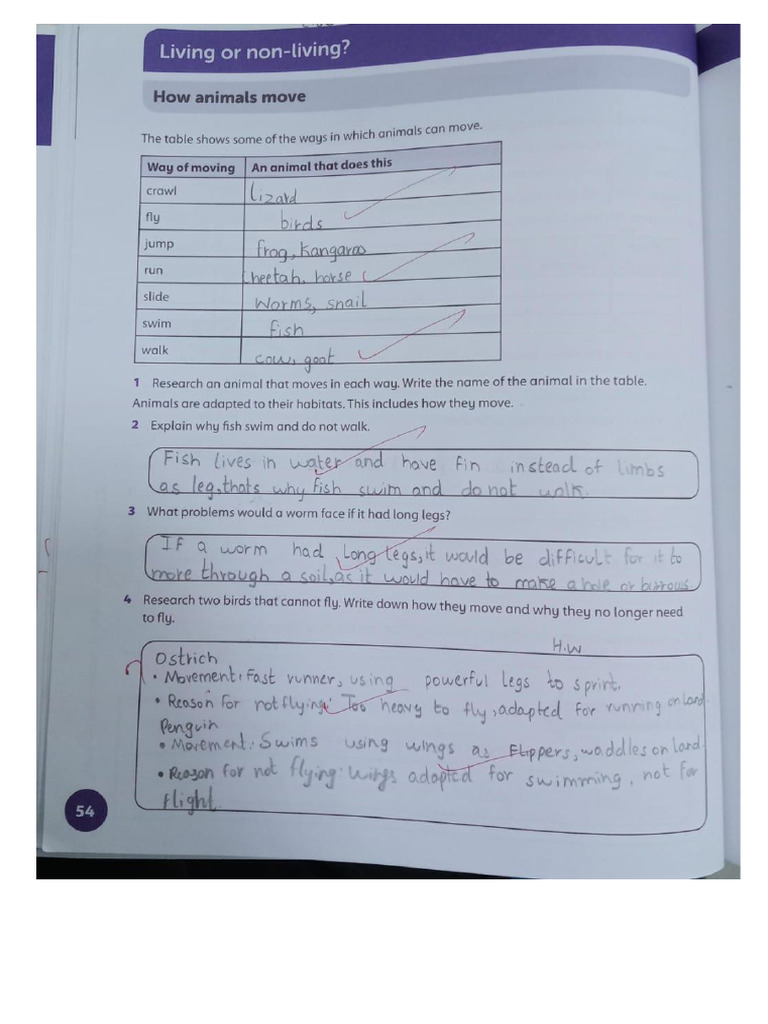 Living or non-living?
How animals move
The table shows some of the ways in which animals can move.
Way of moving An animal that does this
crawl Lizard
fly birds
jump frog, Kangaroo
run cheetah, horse
slide Worms, snail
swim fish
walk cow, goat
1 Research an animal that moves in each way. Write the name of the animal in the table.
Animals are adapted to their habitats. This includes how they move.
2 Explain why fish swim and do not walk.
Fish lives in water and have fin instead of limbs
as leg, thats why fish swim and do not walk.
3 What problems would a worm face if it had long legs?
If a worm had Long legs, it would be difficult for it to
move through a soil, as it would have to make a hole or burrows.
4 Research two birds that cannot fly. Write down how they move and why they no longer need
to fly.
H.W
Ostrich
• Movement: Fast runner, using powerful legs to sprint.
• Reason for not flying: Too heavy to fly, adapted for running on land.
Penguin
• Movement: Swims using wings as Flippers, waddles on land.
• Reason for not flying: wings adapted for swimming, not for
flight.
54